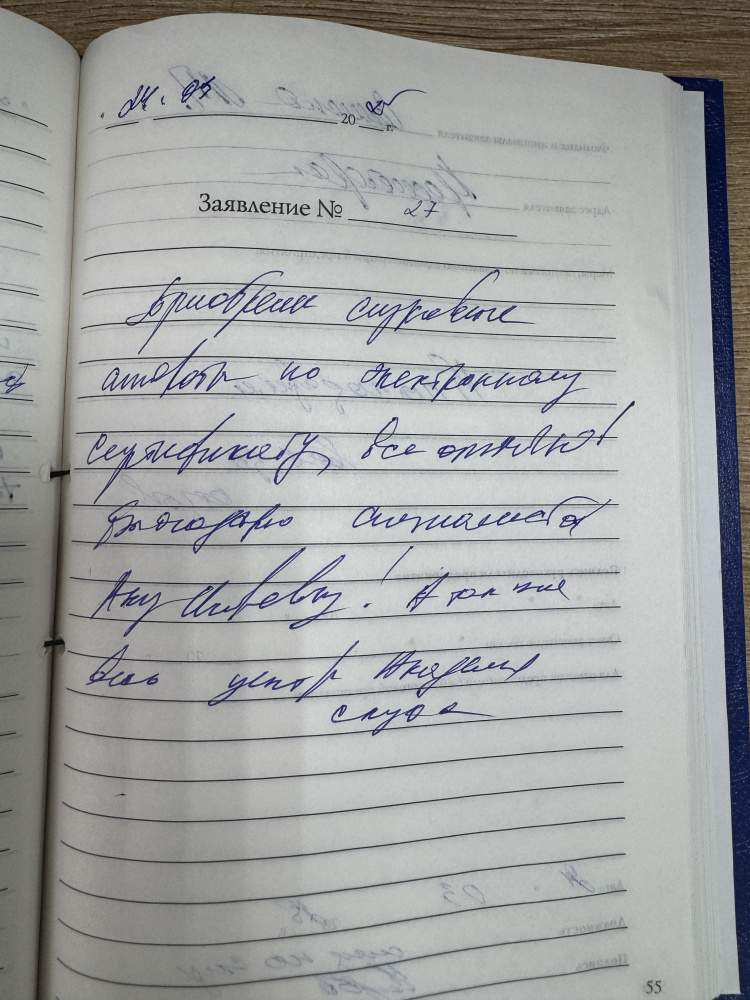 24. 03 2025 г.
Заявление № 27
Приобрели слуховые
аппараты по электронному
сертификату, все отлично!
Благодарю специалиста
Анну! А так же
весь центр Академия
слуха
55